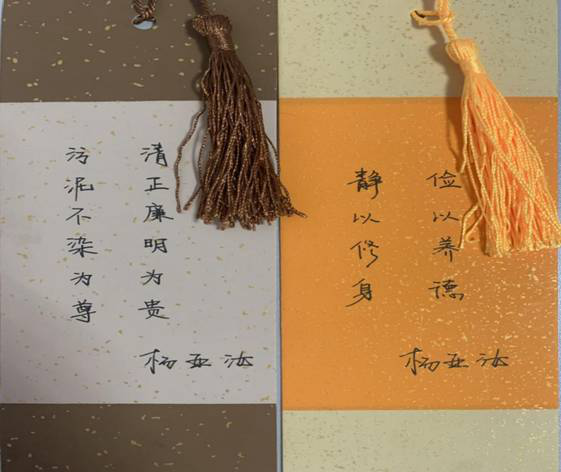 清正廉明为贵
污泥不染为尊
杨亚法
俭以养德
静以修身
杨亚法